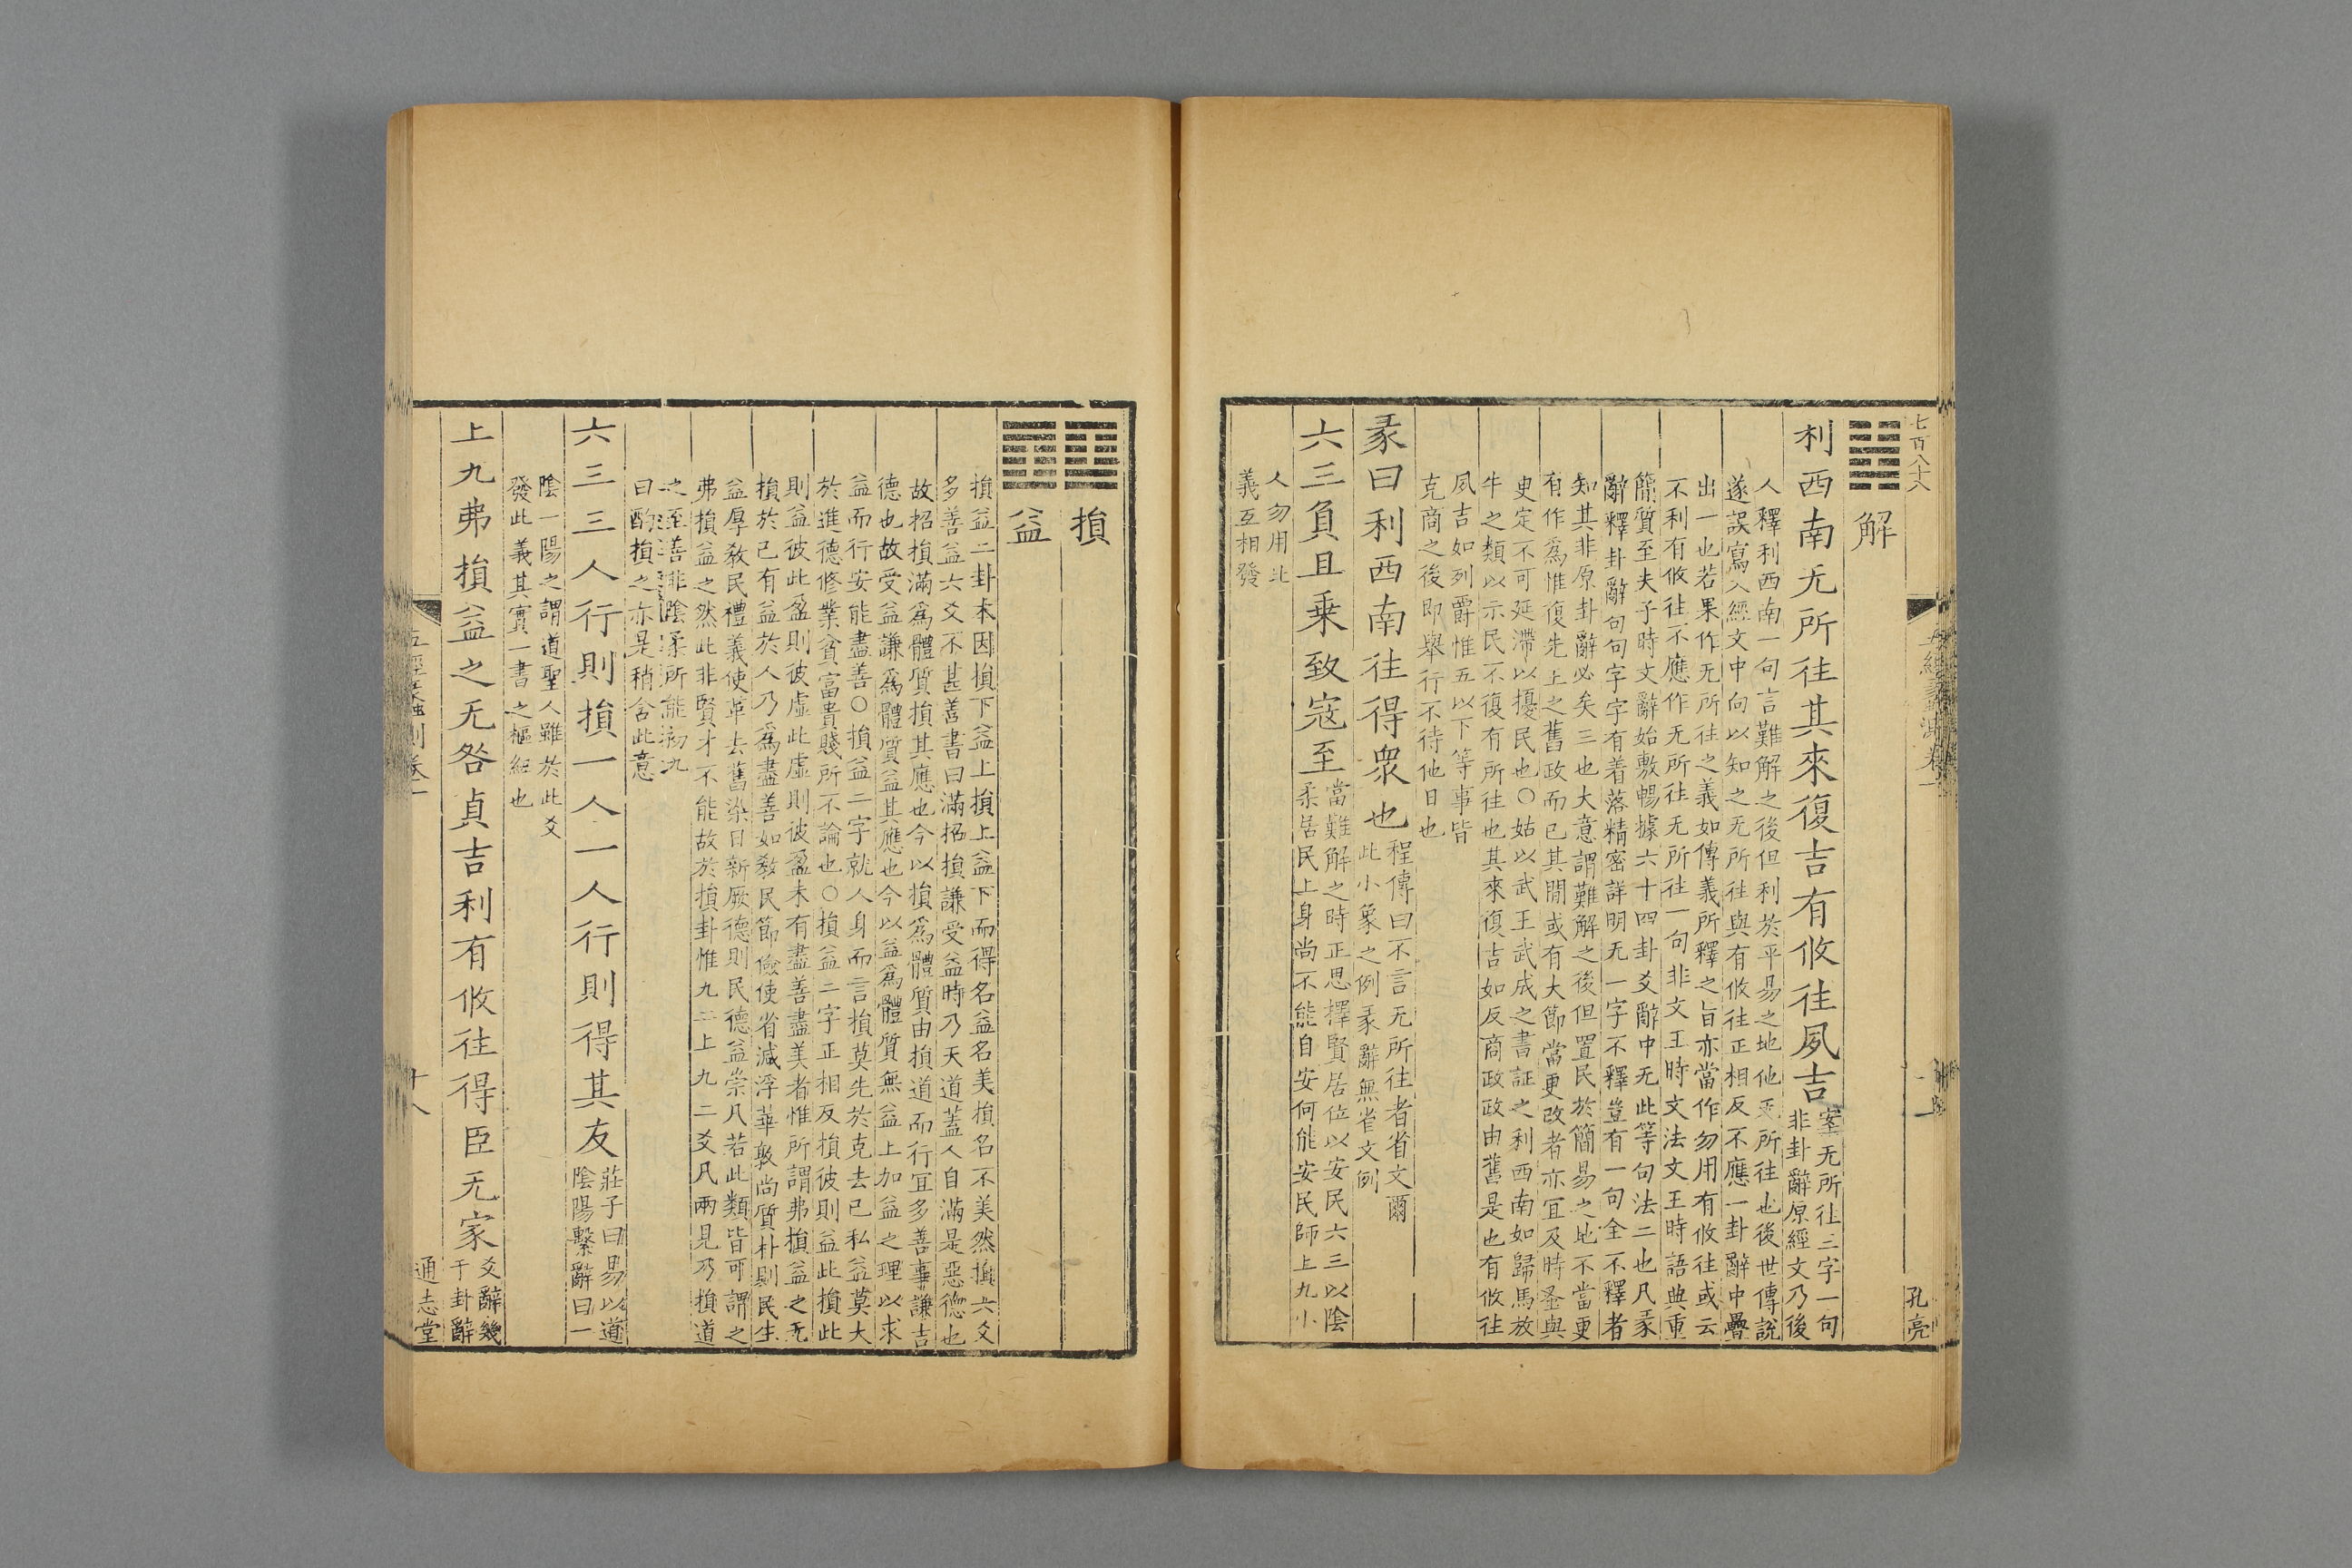 七百八十八
孔亮
解
利西南无所往其來復吉有攸往夙吉
案无所往三字一句
非卦辭原經文乃後
人釋利西南一句言難解之後但利於平易之地他无所往也後世傳說
遂誤寫入經文中向以知之无所往與有攸往正相反不應一卦辭中疊
出一也若果作无所往之義如傳義所釋之旨亦當作勿用有攸往或云
不利有攸往不應作无所往无所往一句非文王時文法文王時語典重
簡質至夫子時文辭始敷暢據六十四卦爻辭中无此等句法二也凡彖
辭釋卦辭句句字字有着落精密詳明无一字不釋豈有一句全不釋者
知其非原卦辭必矣三也大意謂難解之後但置民於簡易之地不當更
有作爲惟復先上之舊政而已其間或有大節當更改者亦宜及時亟與
更定不可延滯以擾民也○姑以武王武成之書証之利西南如歸馬放
牛之類以示民不復有所往也其來復吉如反商政政由舊是也有攸往
夙吉如列爵惟五以下等事皆
克商之後即舉行不待他日也
彖曰利西南往得衆也
程傳曰不言无所往者省文爾
此小象之例彖辭無省文例
六三負且乗致寇至
當難解之時正思擇賢居位以安民六三以陰
柔居民上身尚不能自安何能安民師上九小
人勿用此
義互相發
損
益
損益二卦本因損下益上損上益下而得名益名美損名不美然損六爻
多善益六爻不甚善書曰滿招損謙受益時乃天道蓋人自滿是惡德也
故招損滿爲體質損其應也今以損爲體質由損道而行宜多善事謙吉
德也故受益謙爲體質益其應也今以益爲體質無益上加益之理以求
益而行安能盡善○損益二字就人身而言損莫先於克去已私益莫大
於進德修業貧富貴賤所不論也○損益二字正相反損彼則益此損此
則益彼此盈則彼虛此虛則彼盈未有盡善盡美者惟所謂弗損益之无
損於已有益於人乃爲盡善如敎民節儉使省減浮華敦尚質朴則民生
益厚敎民禮義使革去舊染日新厥德則民德益崇凡若此類皆可謂之
弗損益之然此非賢才不能故於損卦惟九二上九二爻凡兩見乃損道
之至善非陰柔所能初九
曰酌損之亦是稍含此意
六三三人行則損一人一人行則得其友
莊子曰易以道
陰陽繫辭曰一
陰一陽之謂道聖人雖於此爻
發此義其實一書之樞紐也
上九弗損益之无咎貞吉利有攸往得臣无家
爻辭幾
于卦辭
五經蠡測卷一
十八
通志堂